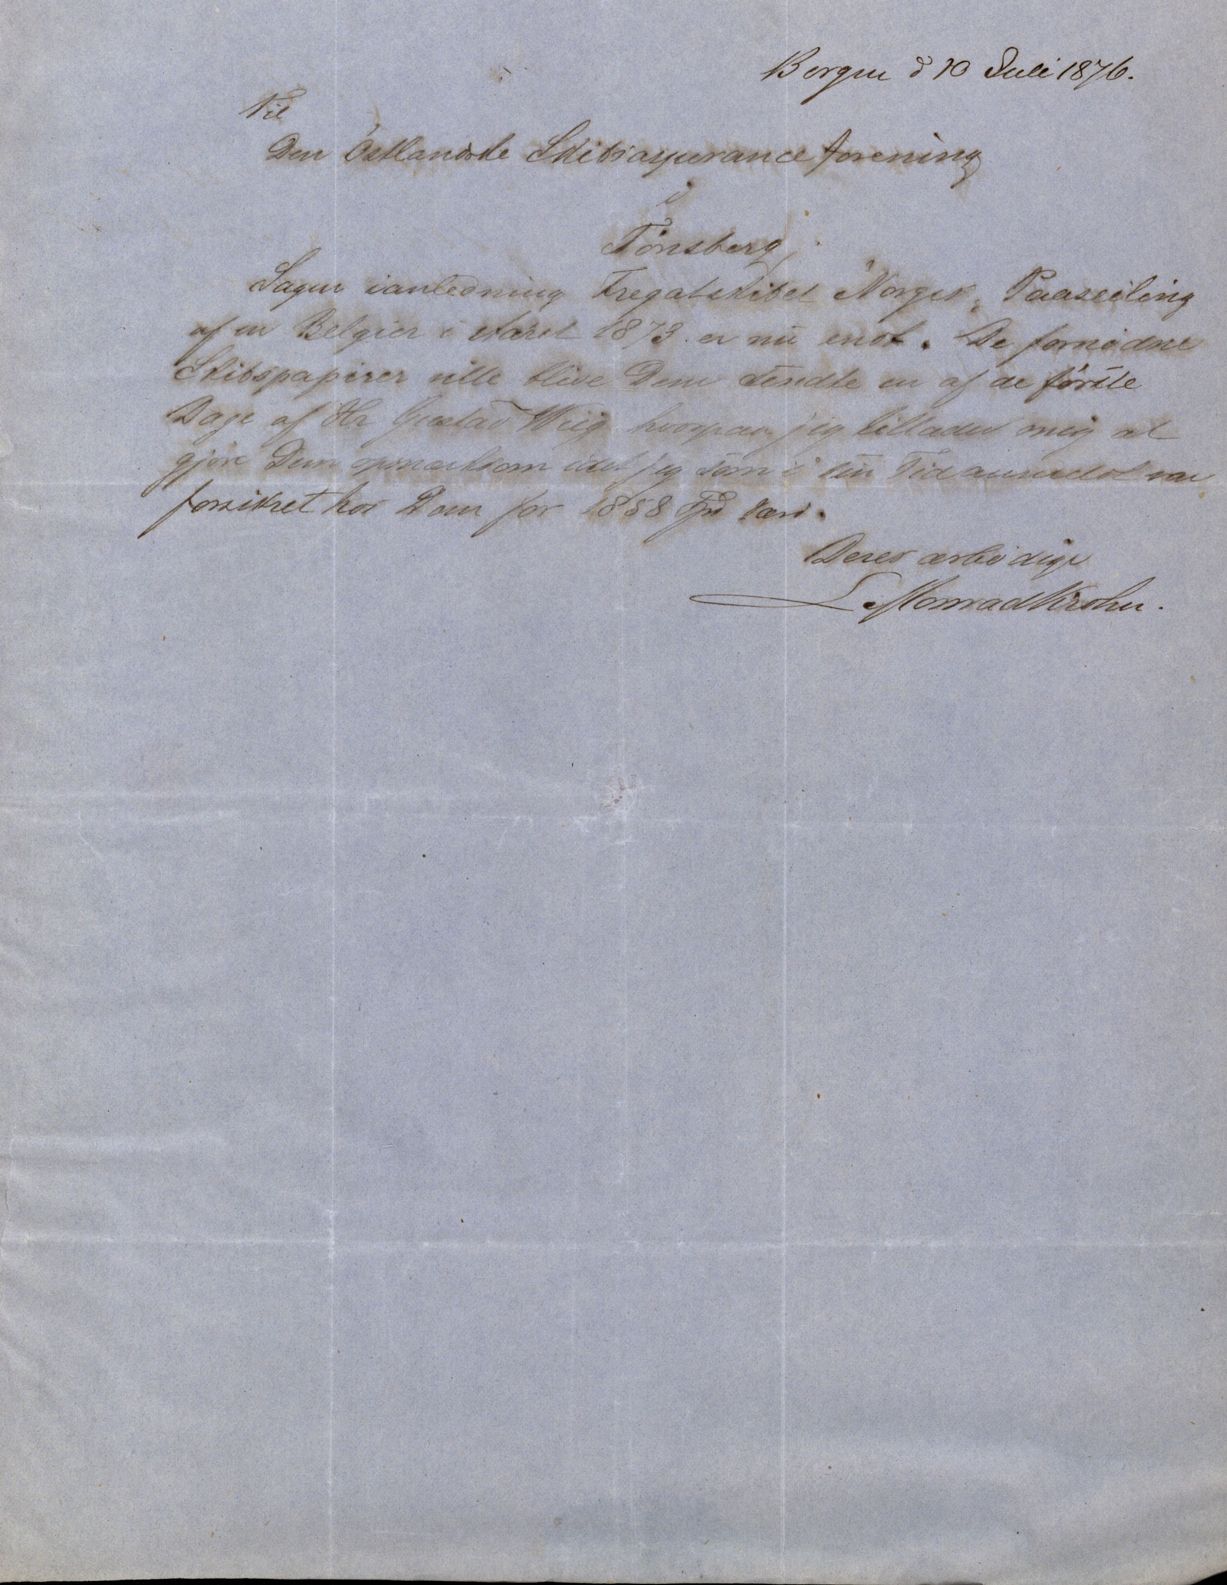 Bergen d 10 Juli 1876.
Til
Den Østlandske Skibsassuranceforening
i
Tønsberg,
Sagen ianledning Fregatskibet "Norges" Paaseiling
af en Belgier i Aaret 1873 er nu endt. De fornødne
Skibspapirer ville blive Dem sendte en af de første
Dage af Hr Gustav Wiig hvorpaa jeg tillader mig at
gjøre Dem opmærksom idet jeg som i sin Tid anmeldt var
forsikret hos Dem for 1858 Spd
Deres ærbødige
L. Monrad Krohn.